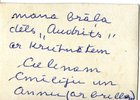 mana brāļa
dēls "Audrīts"
ar krustmātēm
Cielēnam
Emīliju un
Annu (ar brillēm